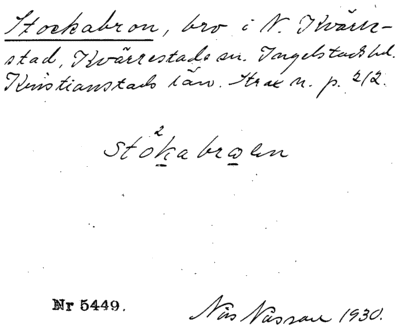 Stockabron, bro i N. Kvärre-
stad, Kvärrestads sn. Ingelstads hd.
Kristianstads län. Strax n. p. 2/2.
2
stōkabrωen
Nr 5449.
Nils Nilsson 1930.